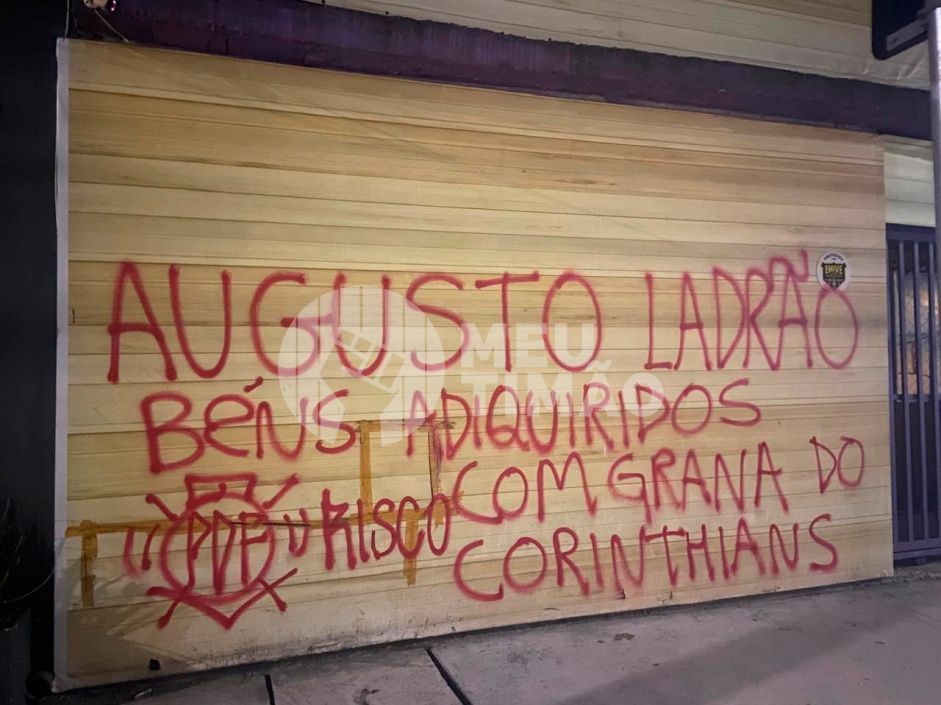 AUGUSTO LADRÃO
BÉNS ADIQUIRIDOS
COM GRANA DO
"PDF" RISCO
CORINTHIANS
MEU
TIMÃO
EMIVE